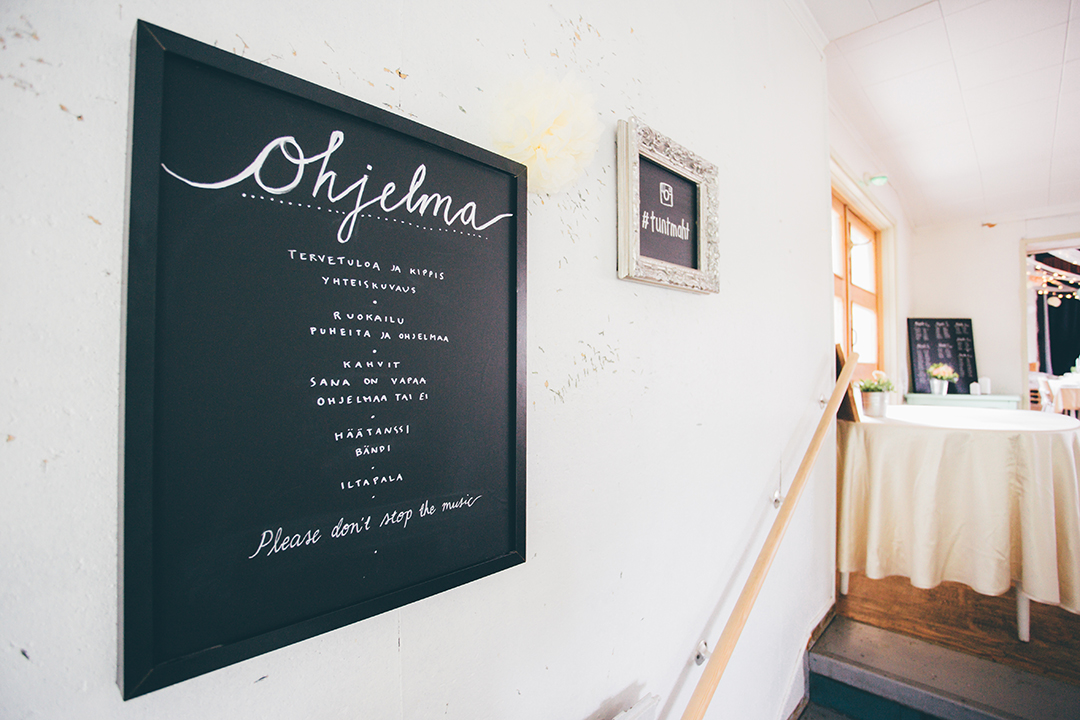 Ohjelma
TERVETULOA JA KIPPIS
YHTEISKUVAUS
RUOKAILU
PUHEITA JA OHJELMAA
KAHVIT
SANA ON VAPAA
OHJELMAA TAI EI
HÄÄTANSSI
BÄNDI
ILTAPALA
Please don't stop the music
#tuntmaht